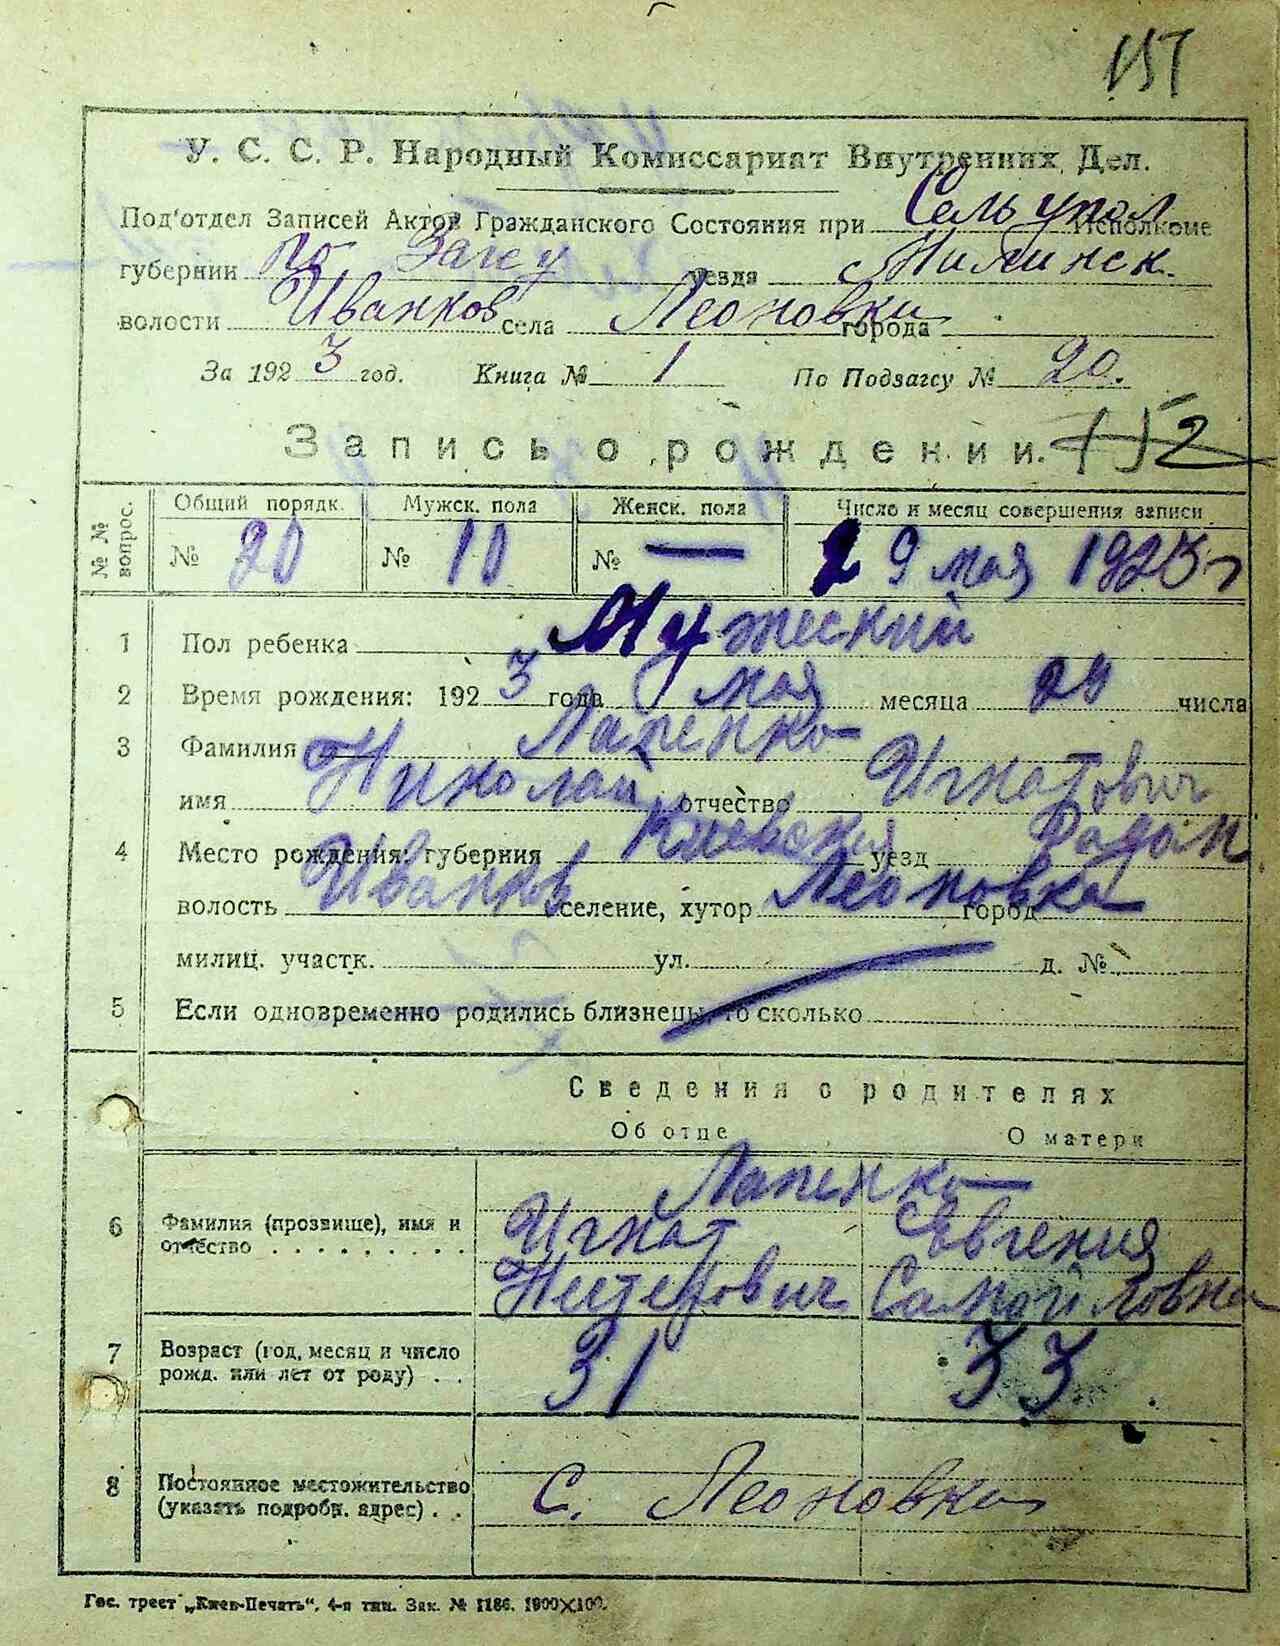 157
У. С. С. Р. Народный Комиссариат Внутренних Дел.
Под'отдел Записей Актов Гражданского Состояния при Сельупол Исполкоме
губернии по Загсу уезда
волости Иванков села Леоновки города
За 1923 год. Книга № 1 По Подзагсу № 20.
Запись о рождении. 152
№№ вопрос. Общий порядк. Мужск. пола Женск. пола Число и месяц совершения записи
№ 20 № 10 № — 29 мая 1923 г
1 Пол ребенка Мужеский
2 Время рождения: 1923 года мая месяца 29 числа
3 Фамилия Лапенко
имя Николай отчество Игнатович
4 Место рождения: губерния Киевская уезд
волость Иванков селение, хутор Леоновка город
милиц. участк. ул. д. №
5 Если одновременно родились близнецы, то сколько
Сведения о родителях
Об отце О матери
Лапенко
6 Фамилия (прозвище), имя и отчество . . . . . . . . . . Игнат Евгения
Нестерович Самойловна
7 Возраст (год, месяц и число рожд. или лет от роду) . . 31 33
8 Постоянное местожительство (указать подробн. адрес) . . С. Леоновка
Гос. трест „Киев-Печать“, 4-я тип. Зак. № 1186. 1000×100.